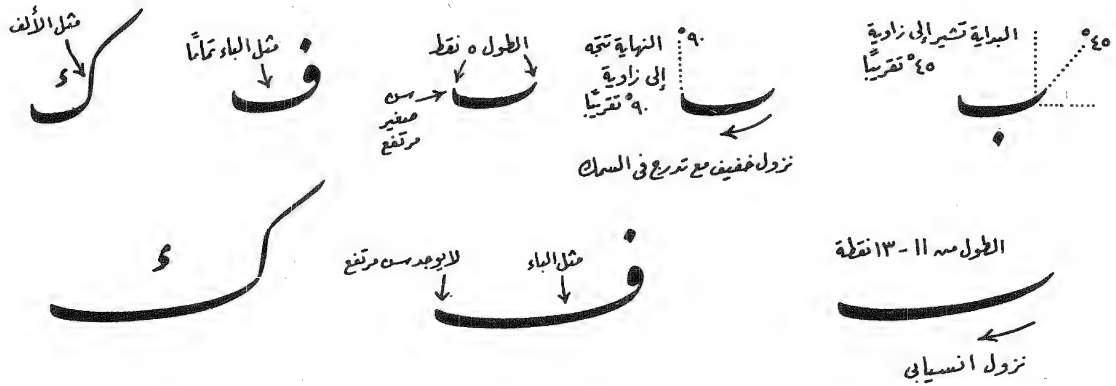 البداية تشير إلى زاوية
٤٥° تقريبًا
٤٥°
ب
النهاية تتجه
إلى زاوية
٩٠° تقريبًا
٩٠°
نزول خفيف مع تدرج في السمك
الطول ٥ نقط
سن
صغير
مرتفع
مثل الباء تمامًا
ف
مثل الألف
ك
الطول من ١١ - ١٣ نقطة
نزول انسيابي
مثل الباء
لا يوجد سن مرتفع
ف
ك